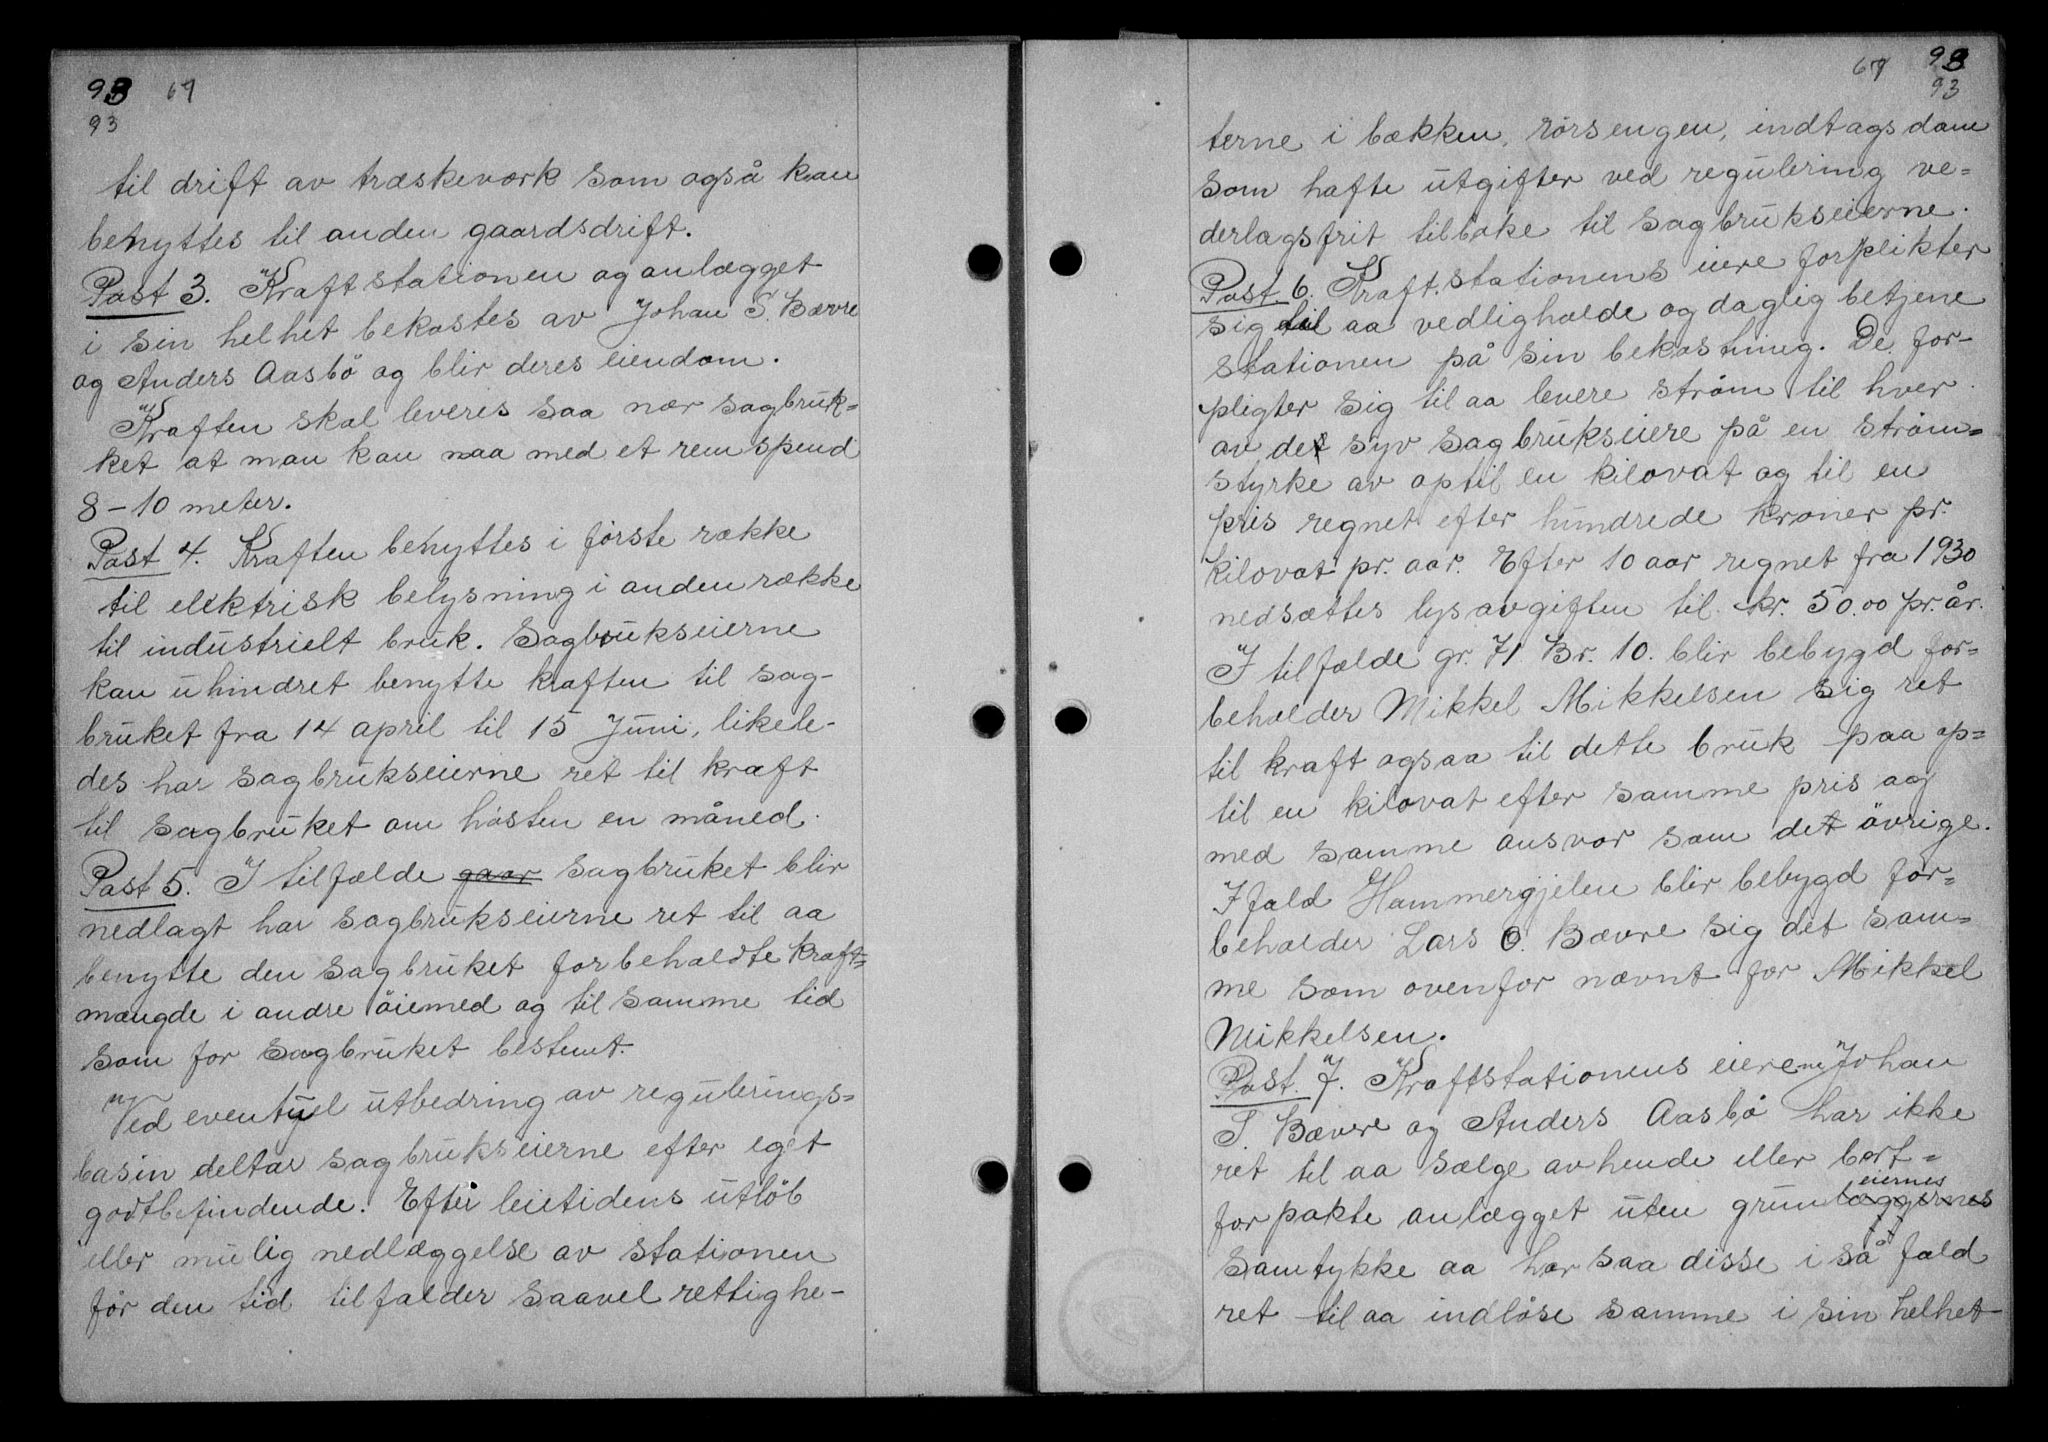 93 67
93
til drift av træskeværk som også kan
benyttes til anden gaardsdrift.
Post 3. Kraftstationen og anlægget
i sin helhet bekostes av Johan S. Bævre
og Anders Aasbö og blir deres eiendom.
Kraften skal leveres saa nær sagbruk=
ket at man kan naa med et remspend
8-10 meter.
Post 4. Kraften benyttes i første række
til elektrisk belysning i anden række
til industrielt bruk. Sagbrukseierne
kan uhindret benytte kraften til sag-
bruket fra 14 april til 15 Juni, likele-
des har sagbrukseierne ret til kraft
til sagbruket om høsten en måned.
Post 5. I tilfælde gaar sagbruket blir
nedlagt har sagbrukseierne ret til aa
benytte den sagbruket forbeholdte kraft=
mængde i andre öiemed og til samme tid
som for sagbruket bestemt.
Ved eventuel utbedring av regulerings=
basin deltar sagbrukseierne efter eget
godtbefindende. Efter leietidens utløb
eller mulig nedlæggelse av stationen
før den tid tilfalder saavel rettighe-
67 93
93
terne i bækken, rörsengen, indtagsdam
som hafte utgifter ved regulering ve=
derlagsfrit tilbake til sagbrukseierne.
Post 6. Kraftstationens eiere forplikter
sig til aa vedligholde og daglig betjene
stationen på sin bekostning. De for-
pligter sig til aa levere strøm til hver
av de syv sagbrukseiere på en strøm=
styrke av optil en kilovat og til en
pris regnet efter hundrede kroner pr.
kilovat pr. aar. Efter 10 aar regnet fra 1930
nedsættes lysavgiften til kr. 50.00 pr. år.
I tilfælde gr. 71 Br. 10. blir bebygd for=
beholder Mikkel Mikkelsen sig ret
til kraft ogsaa til dette bruk paa op=
til en kilovat efter samme pris og
med samme ansvar som det övrige.
Ifald Hammergjelen blir bebygd for=
beholder Lars O. Bævre sig det sam=
me som ovenfor nævnt for Mikkel
Mikkelsen.
Post. 7. Kraftstationens eierne Johan
S. Bævre og Anders Aasbö har ikke
ret til aa sælge avhende eller bort=
eiernes
forpakte anlægget uten grunlæggernes
samtykke aa har saa disse i så fald
ret til aa indløse samme i sin helhet